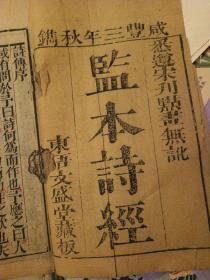 咸豐三年秋鐫
悉遵宋刊點畫無訛
監本詩經
東昌文盛堂藏板
詩傳序
或有問於予曰詩何為而作也予應之曰人